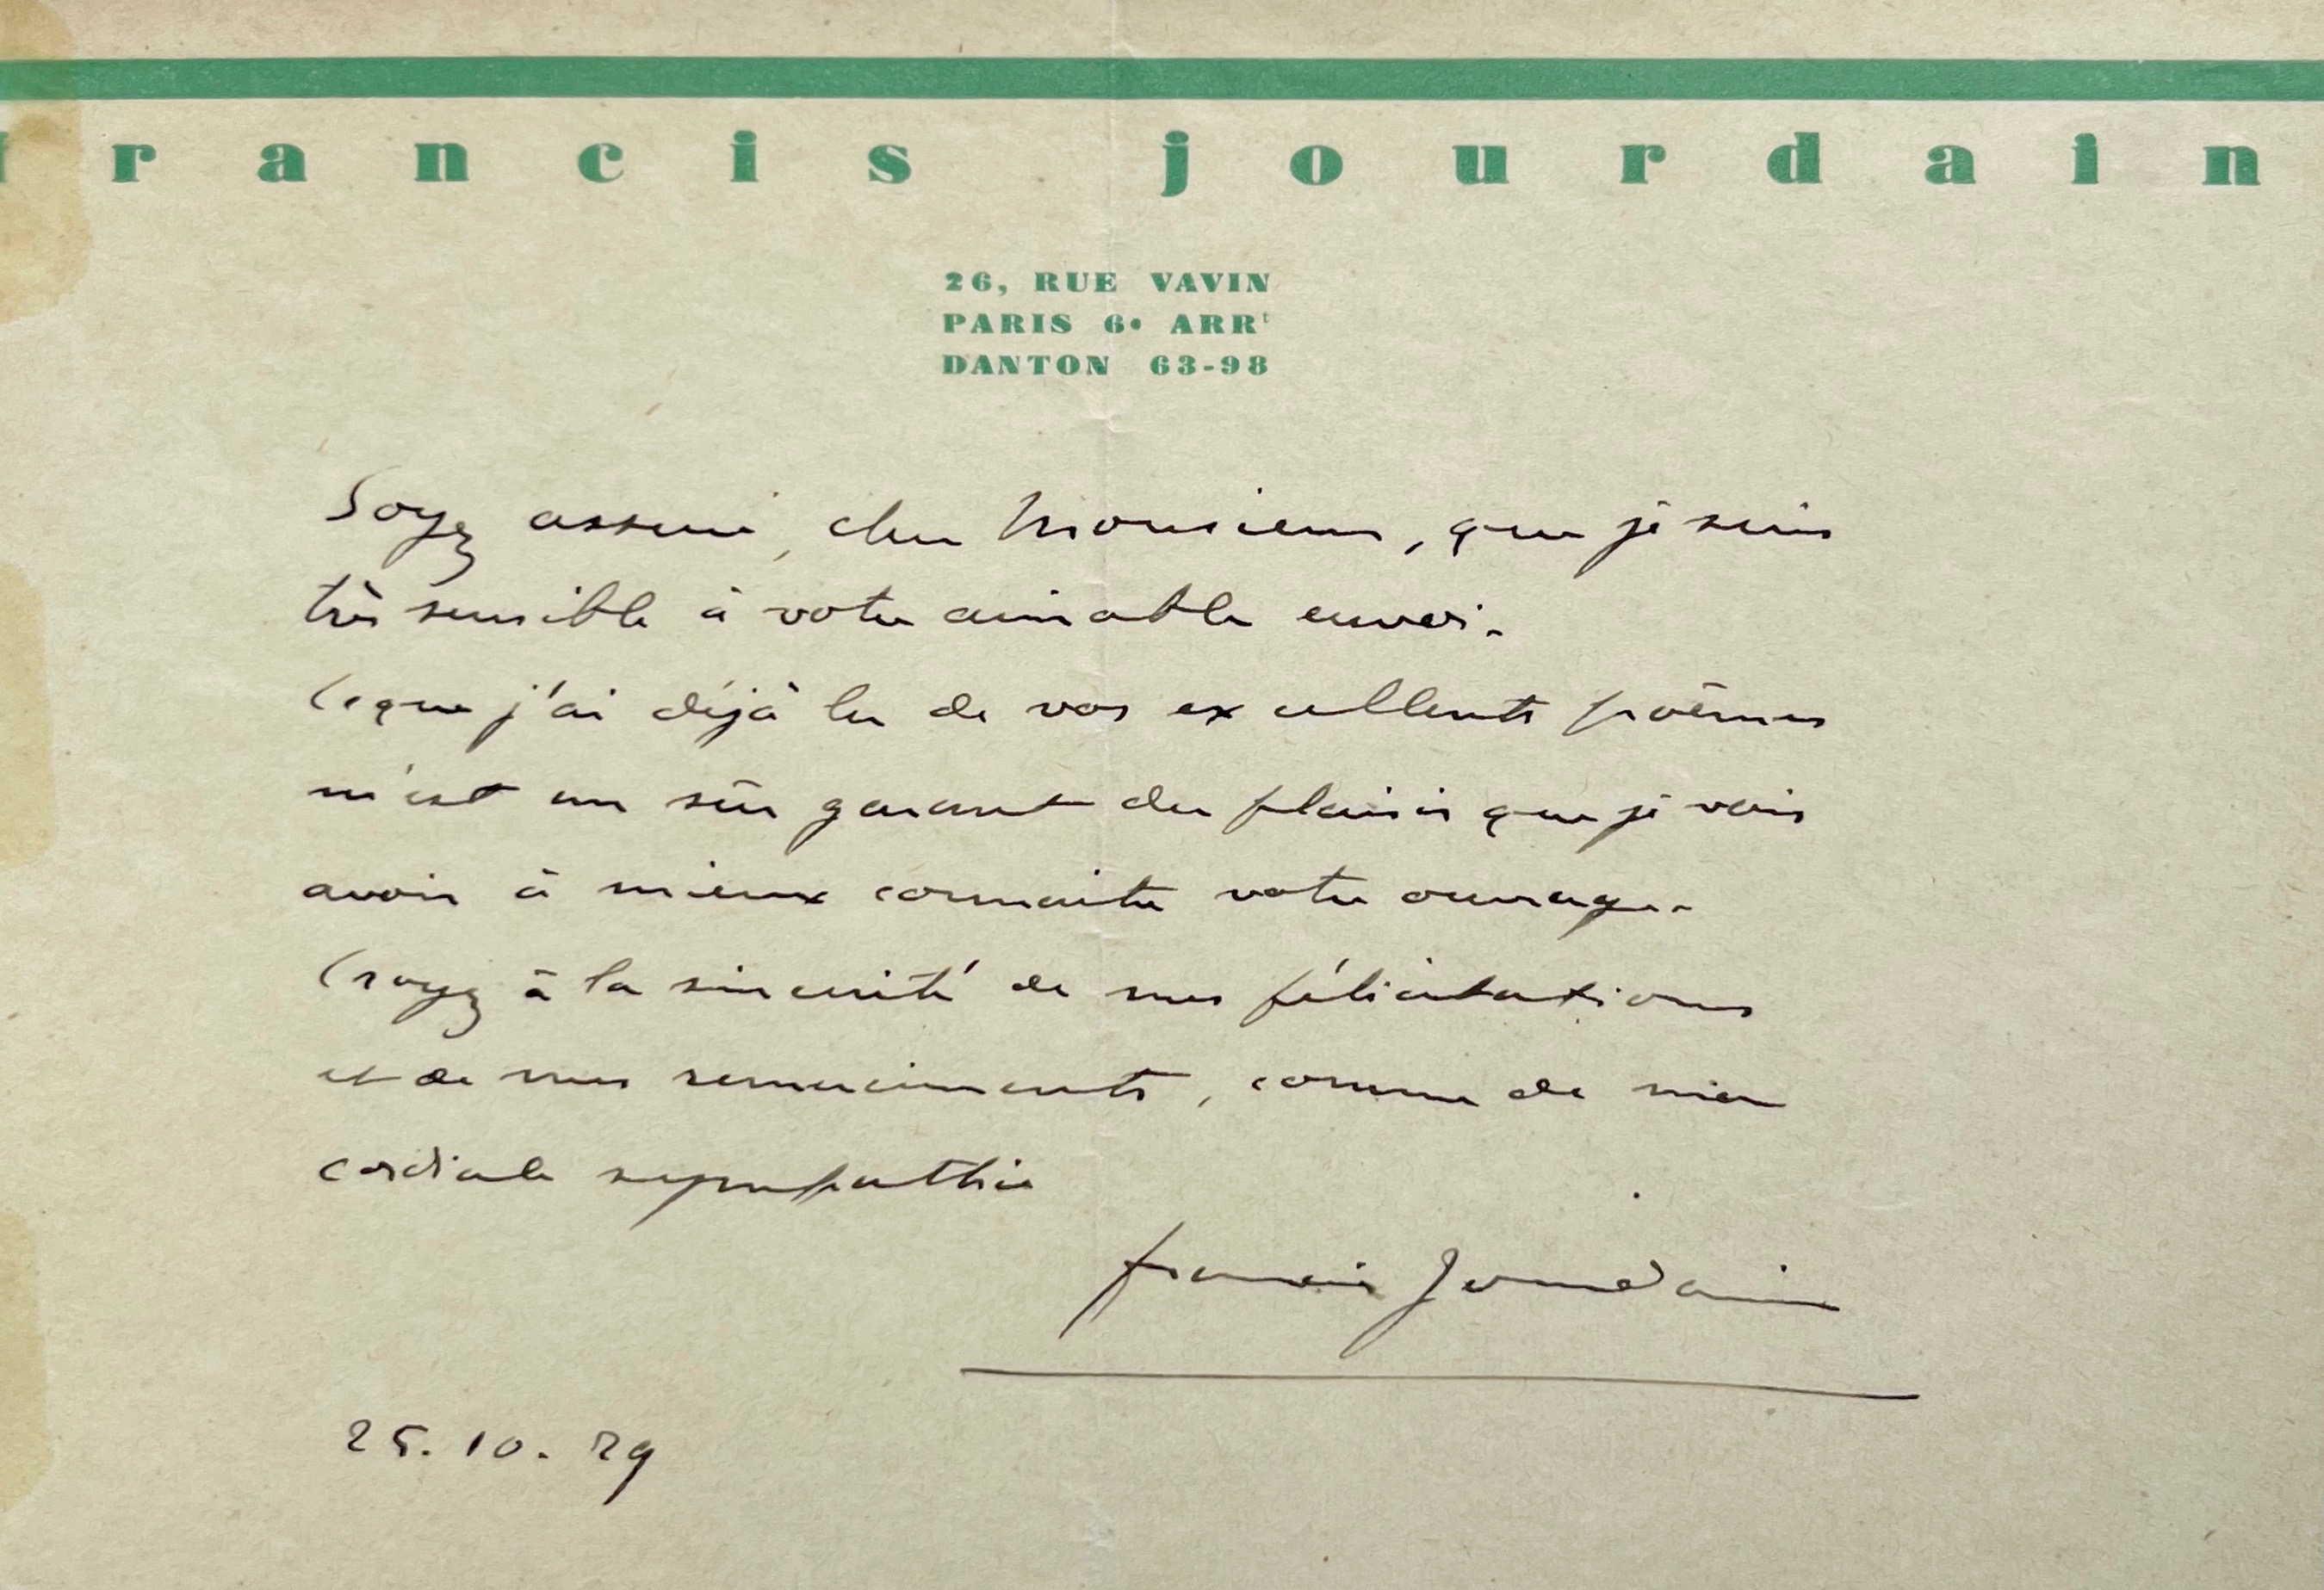 francis jourdain
26, RUE VAVIN
PARIS 6e ARRt
DANTON 63-98
Soyez assuré, cher Monsieur, que je suis
très sensible à votre aimable envoi.
Ce que j'ai déjà lu de vos excellents poèmes
m'est un sûr garant du plaisir que je vais
avoir à mieux connaitre votre ouvrage.
Croyez à la sincérité de mes félicitations
et de mes remerciements, comme de ma
cordiale sympathie
francis Jourdain
25.10.29